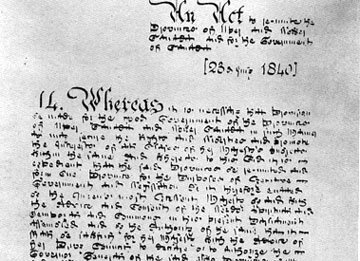 An Act to re-unite the
Provinces of and
Canada and for the Government
of Canada
[23 July 1840]
14. Whereas it is necessary that Provision
be made for the good Government of the Provinces
of Upper Canada and Lower Canada in such Manner
as may secure the Rights and Liberties and promote
the Interests of all Classes of Her Majesty's Subjects
within the same And whereas to this end it is
expedient that the said Provinces be re-united and
form One Province for the Purposes of Executive
Government and Legislation Be it therefore enacted
by the Queen's most Excellent Majesty by and with
the Advice and Consent of the Lords Spiritual and
Temporal and Commons in this present Parliament
assembled and by the Authority of the same that it
shall be lawful for Her Majesty with the Advice of
Her Privy Council to declare or to authorize the
Governor General of the said